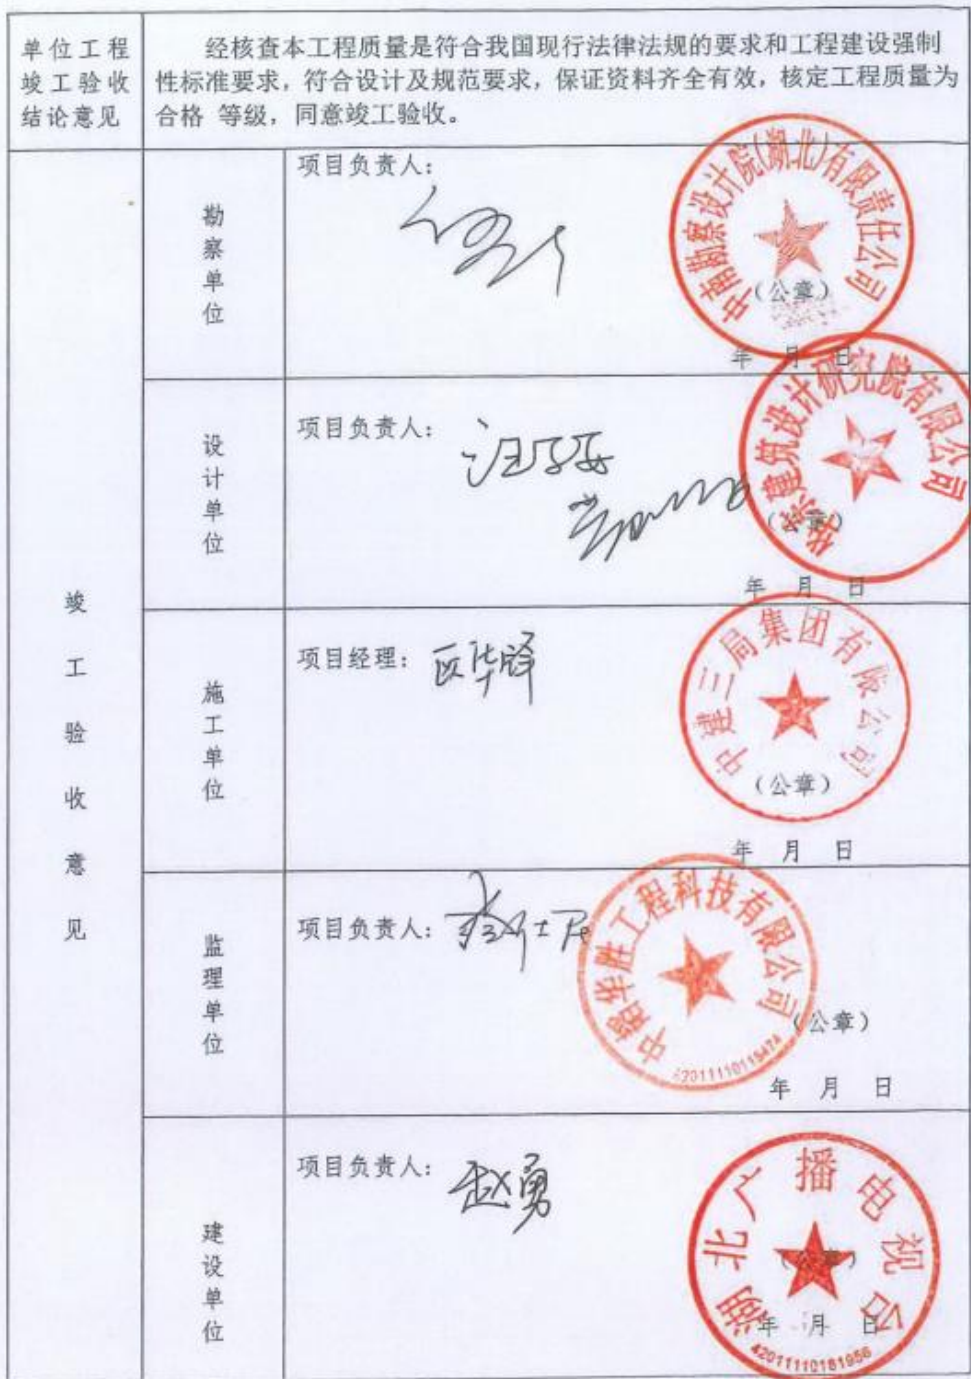 单位工程
竣工验收
结论意见
经核查本工程质量是符合我国现行法律法规的要求和工程建设强制
性标准要求，符合设计及规范要求，保证资料齐全有效，核定工程质量为
合格 等级，同意竣工验收。
竣工验收意见
勘察单位
项目负责人：
中南勘察设计院(湖北)有限责任公司
（公章）
年 月 日
设计单位
项目负责人：
建筑设计研究院有限公司
（公章）
年 月 日
施工单位
项目经理：
中建三局集团有限公司
（公章）
年 月 日
监理单位
项目负责人：
中韬华胜工程科技有限公司
（公章）
年 月 日
建设单位
项目负责人：赵勇
湖北广播电视台
（公章）
年 月 日
42011110181956